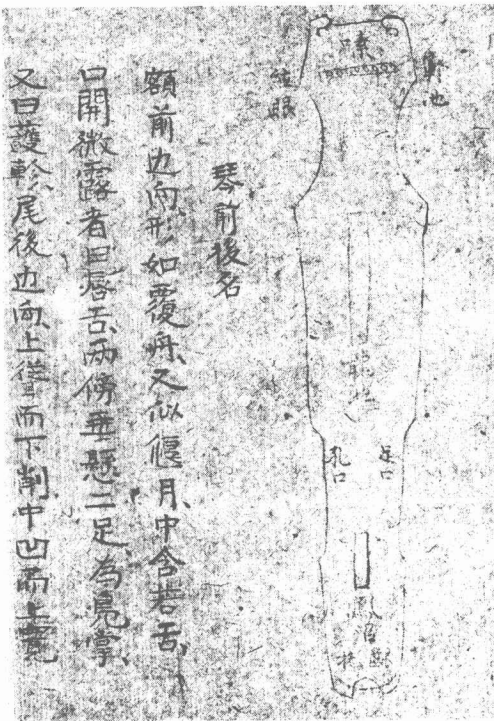 嗉
軫池
絃眼
足口
孔口
鳳沼
琴前後名
額前边向形如覆舟、又似偃月、中含若舌、
口開微露者曰唇舌、兩傍垂懸二足、為鳧掌、
又曰護軫、尾後边向、上從而下削中凹而上寬